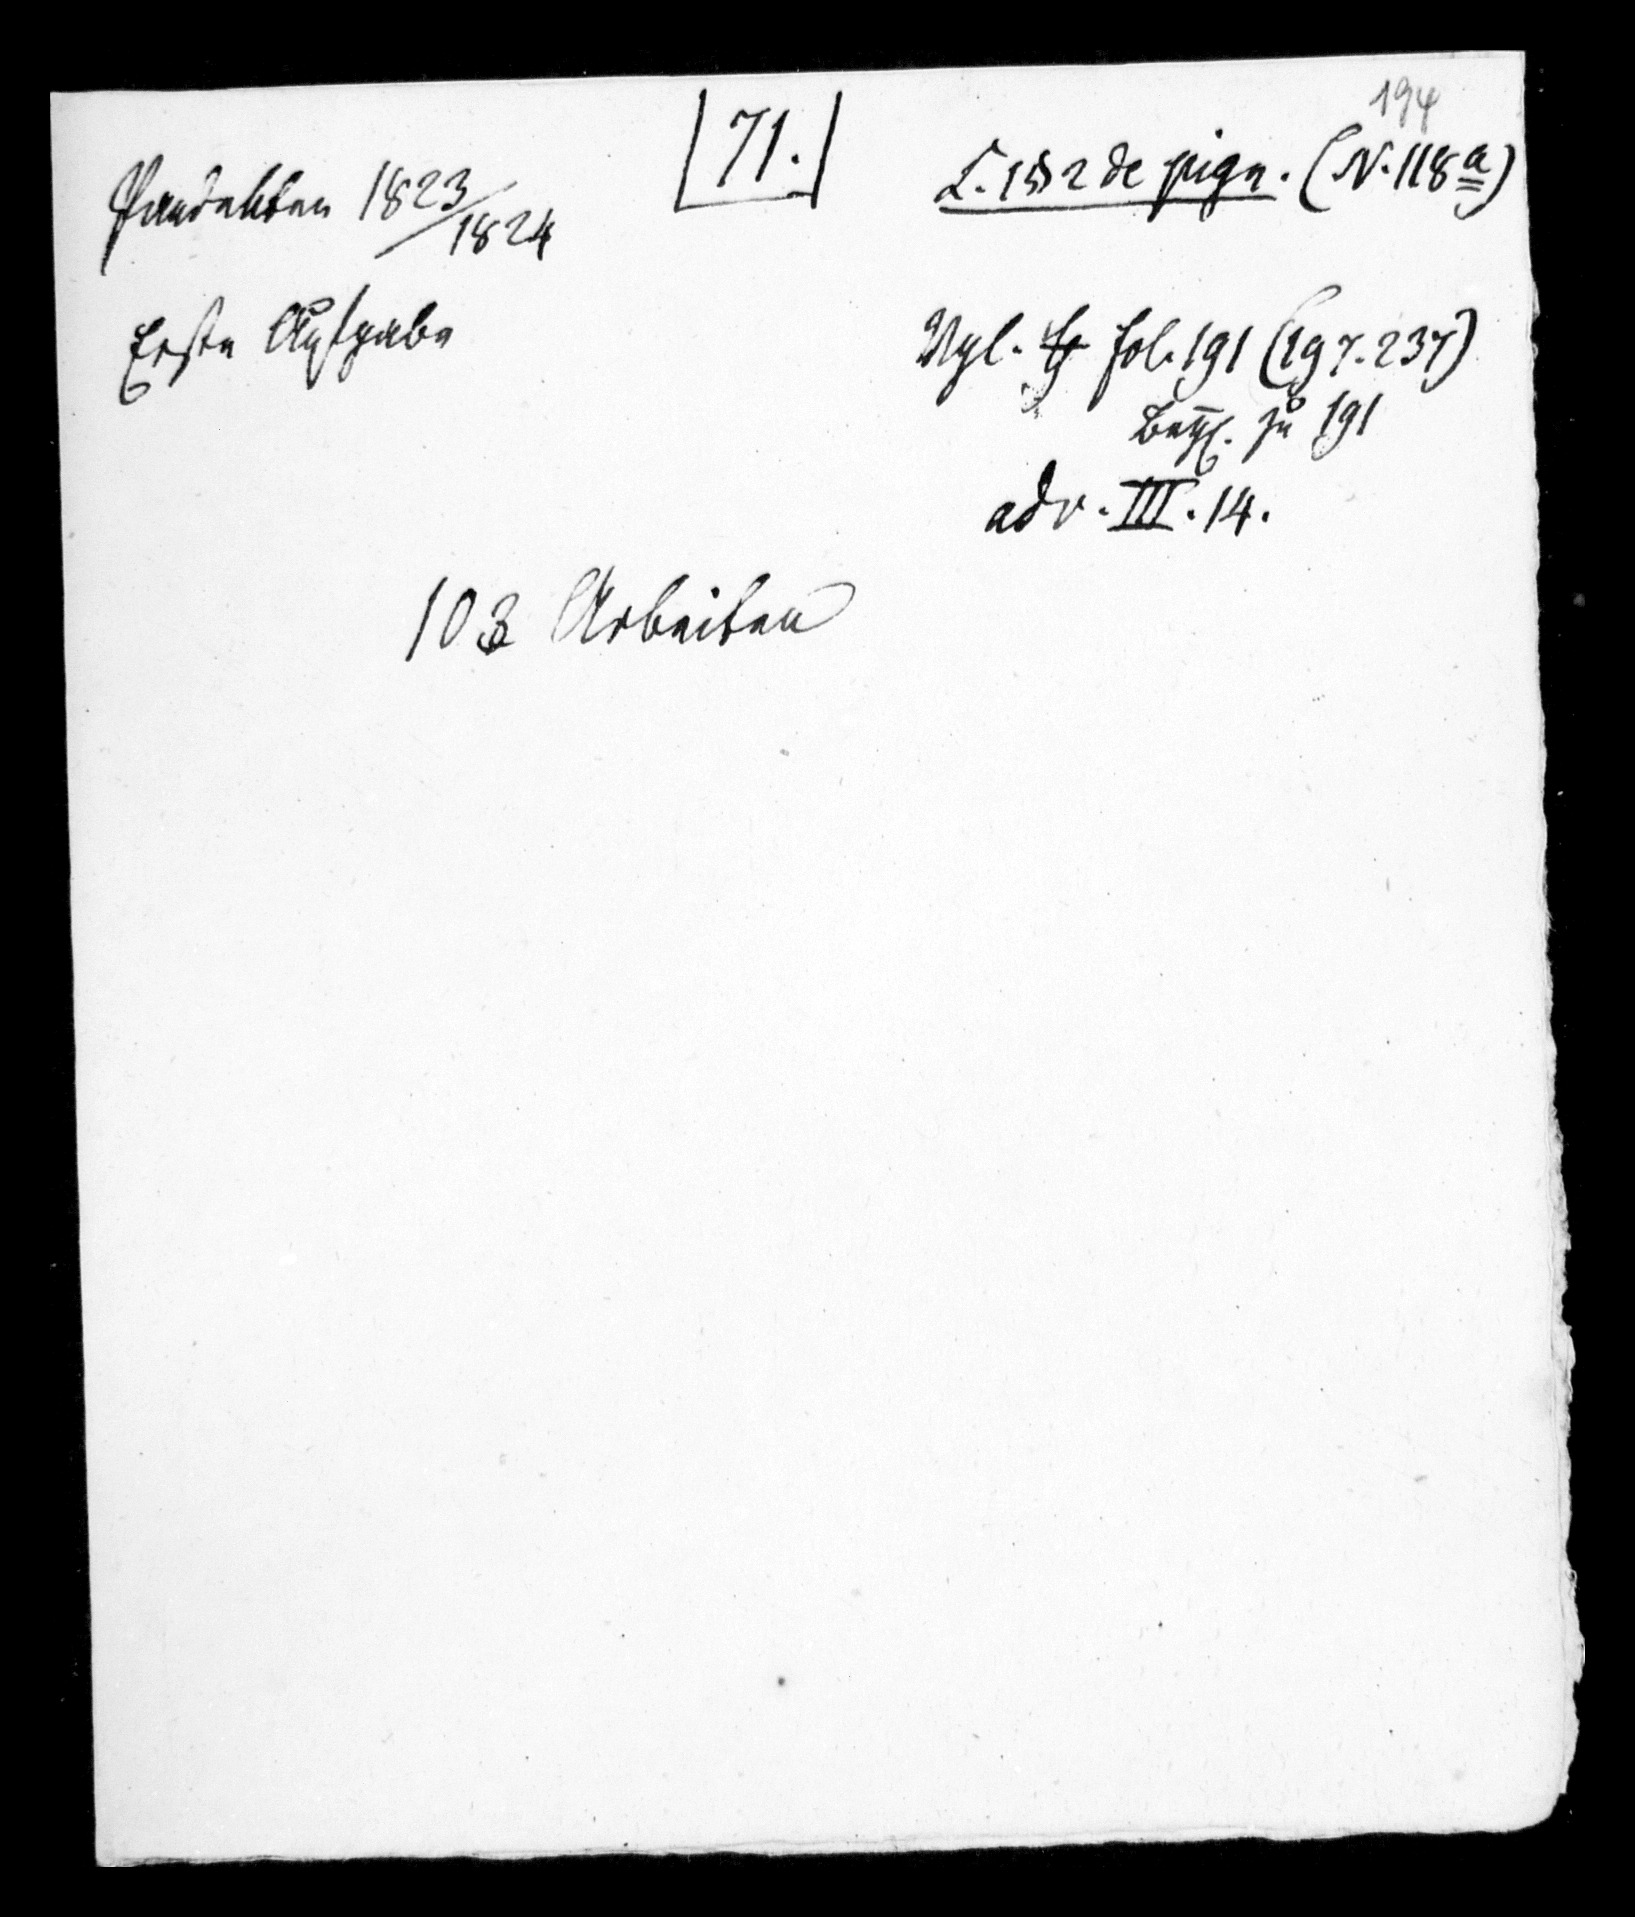 194
Pandekten 1823/1824
71.
L. 1 § 2 de pign. (N. 118 a)
Erste Aufgabe
Vgl. fol. 191 (197. 237)
Beyl. zu 191
adv. III. 14.
103 Arbeiten